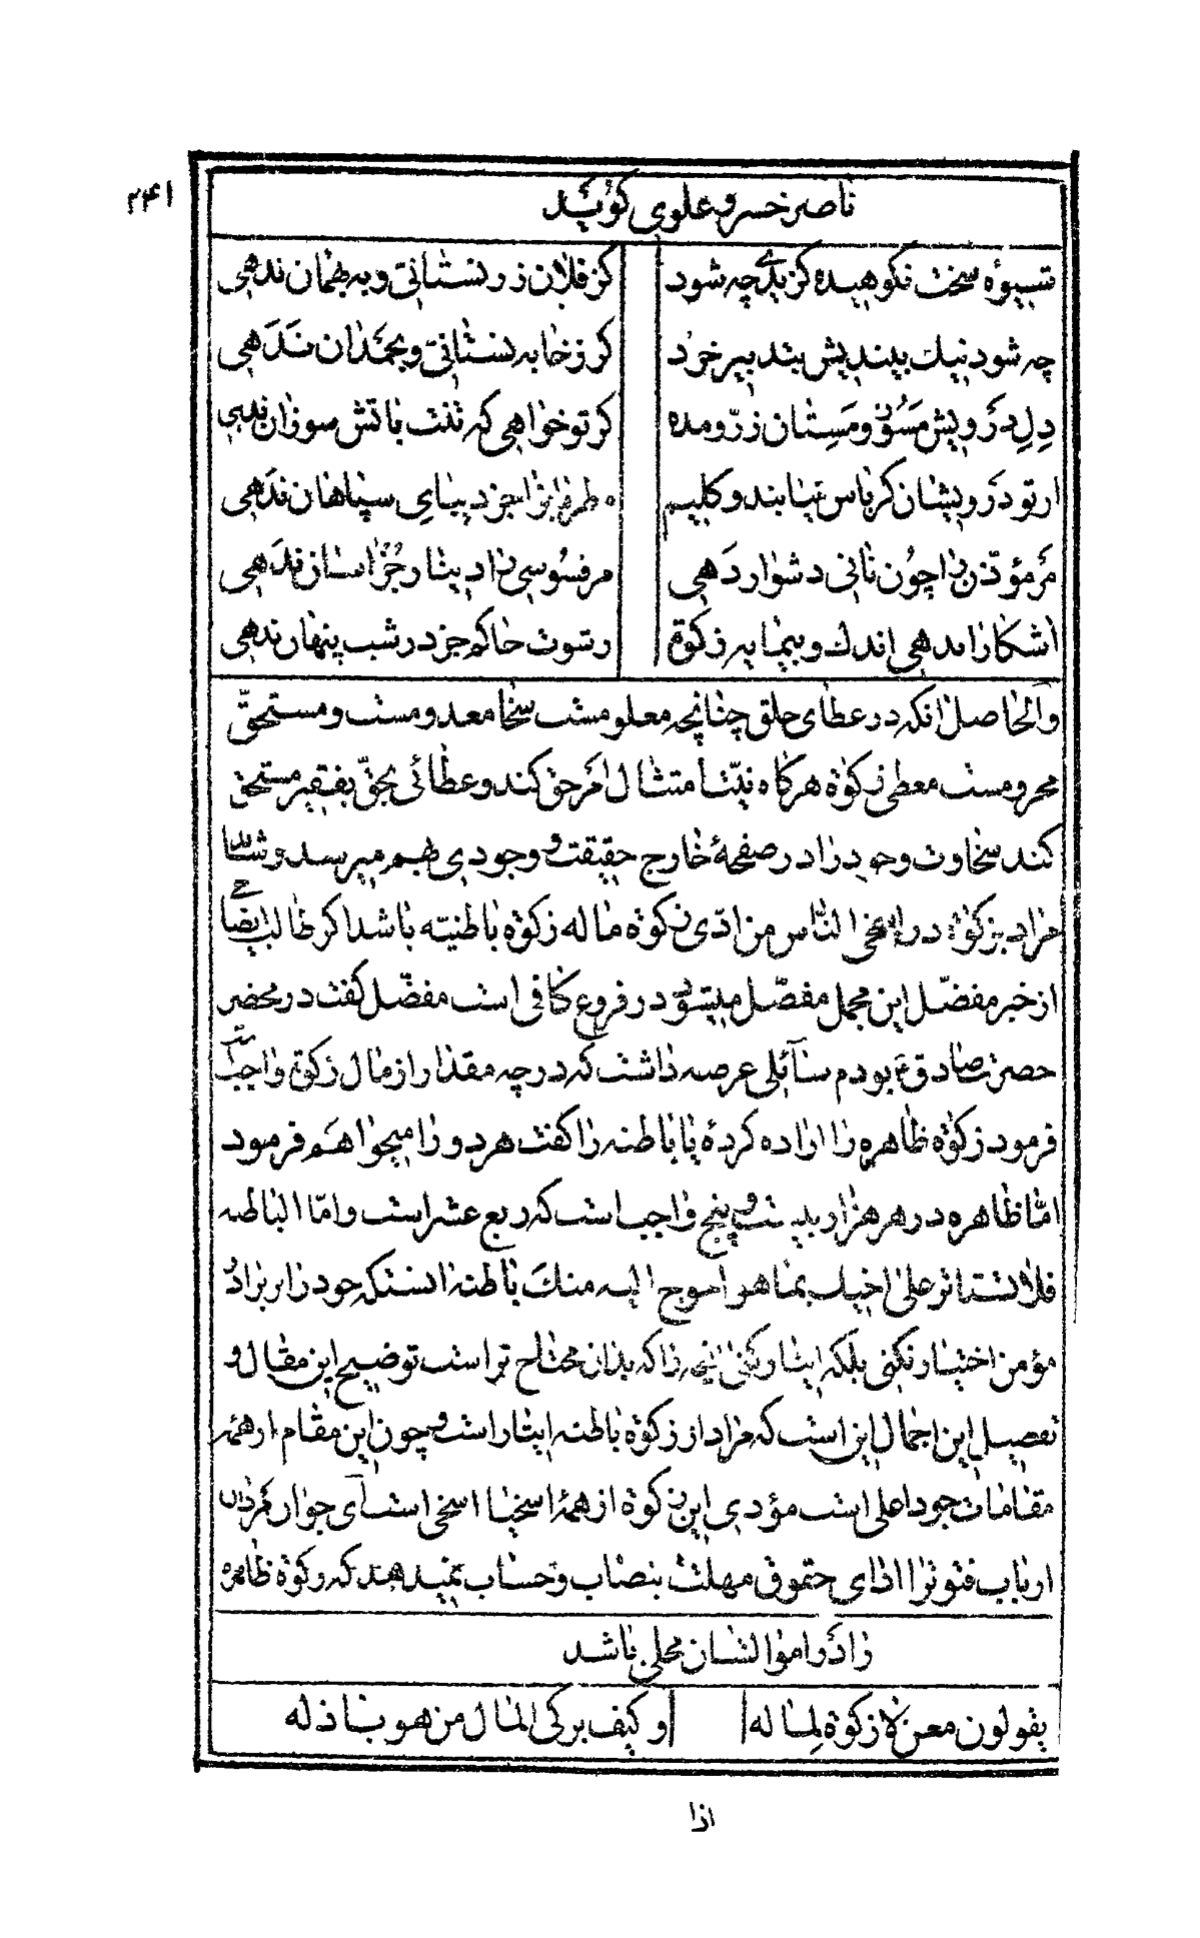 ۲۴۱
ناصر خسرو علوی گوید
شیوهٔ سخت نکوهیده گزیدی چه شود گز فلان زر نستانی و به بهمان ندهی
چه شود نیک بیندیش بتدبیر خرد گر زخابه نستانی و بحمدان ندهی
دل درویش مسوز و مستان زرّ و مده گر تو خواهی که تنت باتش سوزان ندهی
ار تو درویشان کرباس نیابند و گلیم مطرفانرا جز دیبای سپاهان ندهی
مر مؤذّن را چون نانی دشوار دهی مر فسوسی را دینار جز اسان ندهی
اشکارا بدهی اندک و بیمایه زکوة رشوت حاکم جز در شب پنهان ندهی
والحاصل انکه در عطای خلق چنانچه معلومست سخا معدومست و مستحقّ
محرومست معطی زکوة هرگاه نیّت امتثال امر حق کند و عطائی بحقّ بفقیر مستحق
کند سخاوت وجود را در صفحهٔ خارج حقیقت و وجودی بهم میرسد و شاید
مراد بزکوة در اسخی النّاس من ادّی زکوة ماله زکوة باطنیّه باشد اگر طالب ایضاحی
از خبر مفضّل این مجمل مفصّل میشود در فروع کافی است مفضّل گفت در محضر
حضرت صادق ع بودم سآئلی عرضه داشت که در چه مقدار از مال زکوة واجبست
فرمود زکوة ظاهره را اراده کردهٔ یا باطنه را گفت هر دو را میخواهم فرمود
امّا ظاهره در هر هزار بیست و پنج واجب است که ربع عشر است و امّا الباطنه
فلا تستاثر علی اخیک بما هو احوج الیه منک باطنه انستکه خود را بر برادر
مؤمن اختیار نکنی بلکه ایثار کنی انچه را که بدان محتاج تر است توضیح این مقال و
تفصیل این اجمال این است که مراد از زکوة باطنه ایثار است و چون این مقام از همه
مقامات جود اعلی است مؤدی این زکوة از همهٔ اسخیا اسخی است آی جوانمردان
ارباب فتوترا ادای حقوق مهلت بنصاب و حساب نمیدهند که زکوة ظاهره
را در اموالشان محلی باشد
یقولون معن لا زکوة لماله و کیف یزکی المال من هو باذله
اذا